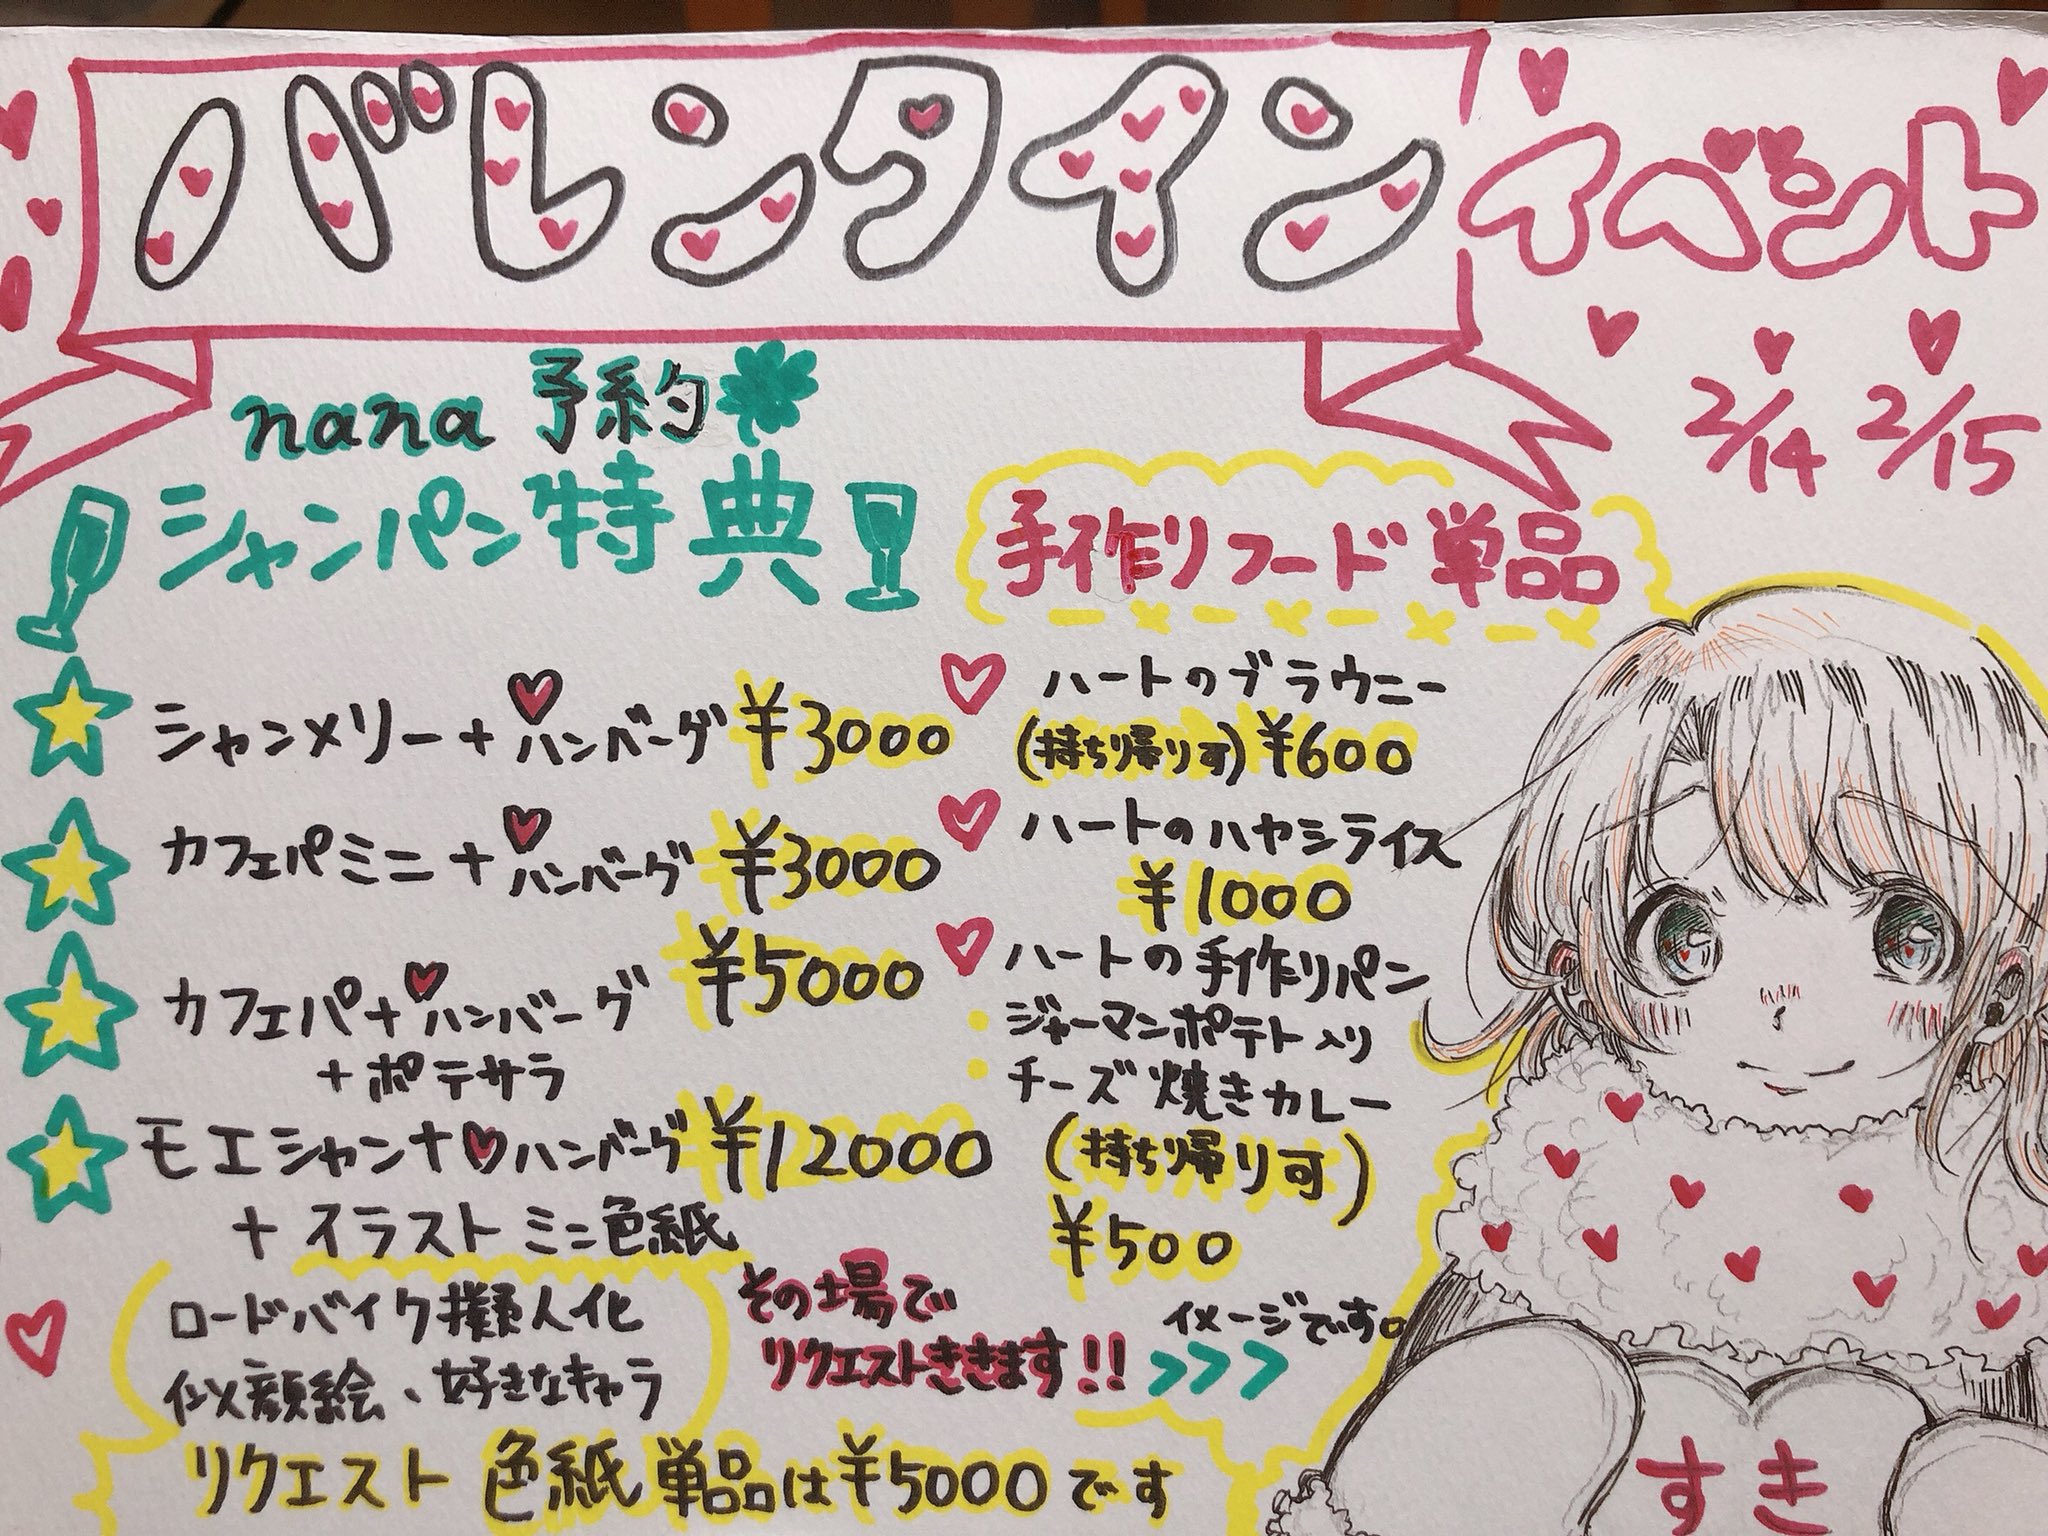 バレンタイン
イベント
2/14 2/15
nana 予約
シャンパン特典
シャンメリー+ハンバーグ ¥3000
カフェパミニ+ハンバーグ ¥3000
カフェパ+ハンバーグ ¥5000
+ポテサラ
モエシャン+ハンバーグ ¥12000
+イラストミニ色紙
ロードバイク擬人化
似顔絵、好きなキャラ
その場で
リクエストききます!!
リクエスト 色紙 単品は¥5000です
手作りフード単品
ハートのブラウニー
(持ち帰り可) ¥600
ハートのハヤシライス
¥1000
ハートの手作りパン
・ジャーマンポテト入り
・チーズ焼きカレー
(持ち帰り可)
¥500
イメージです。
>>>
すき